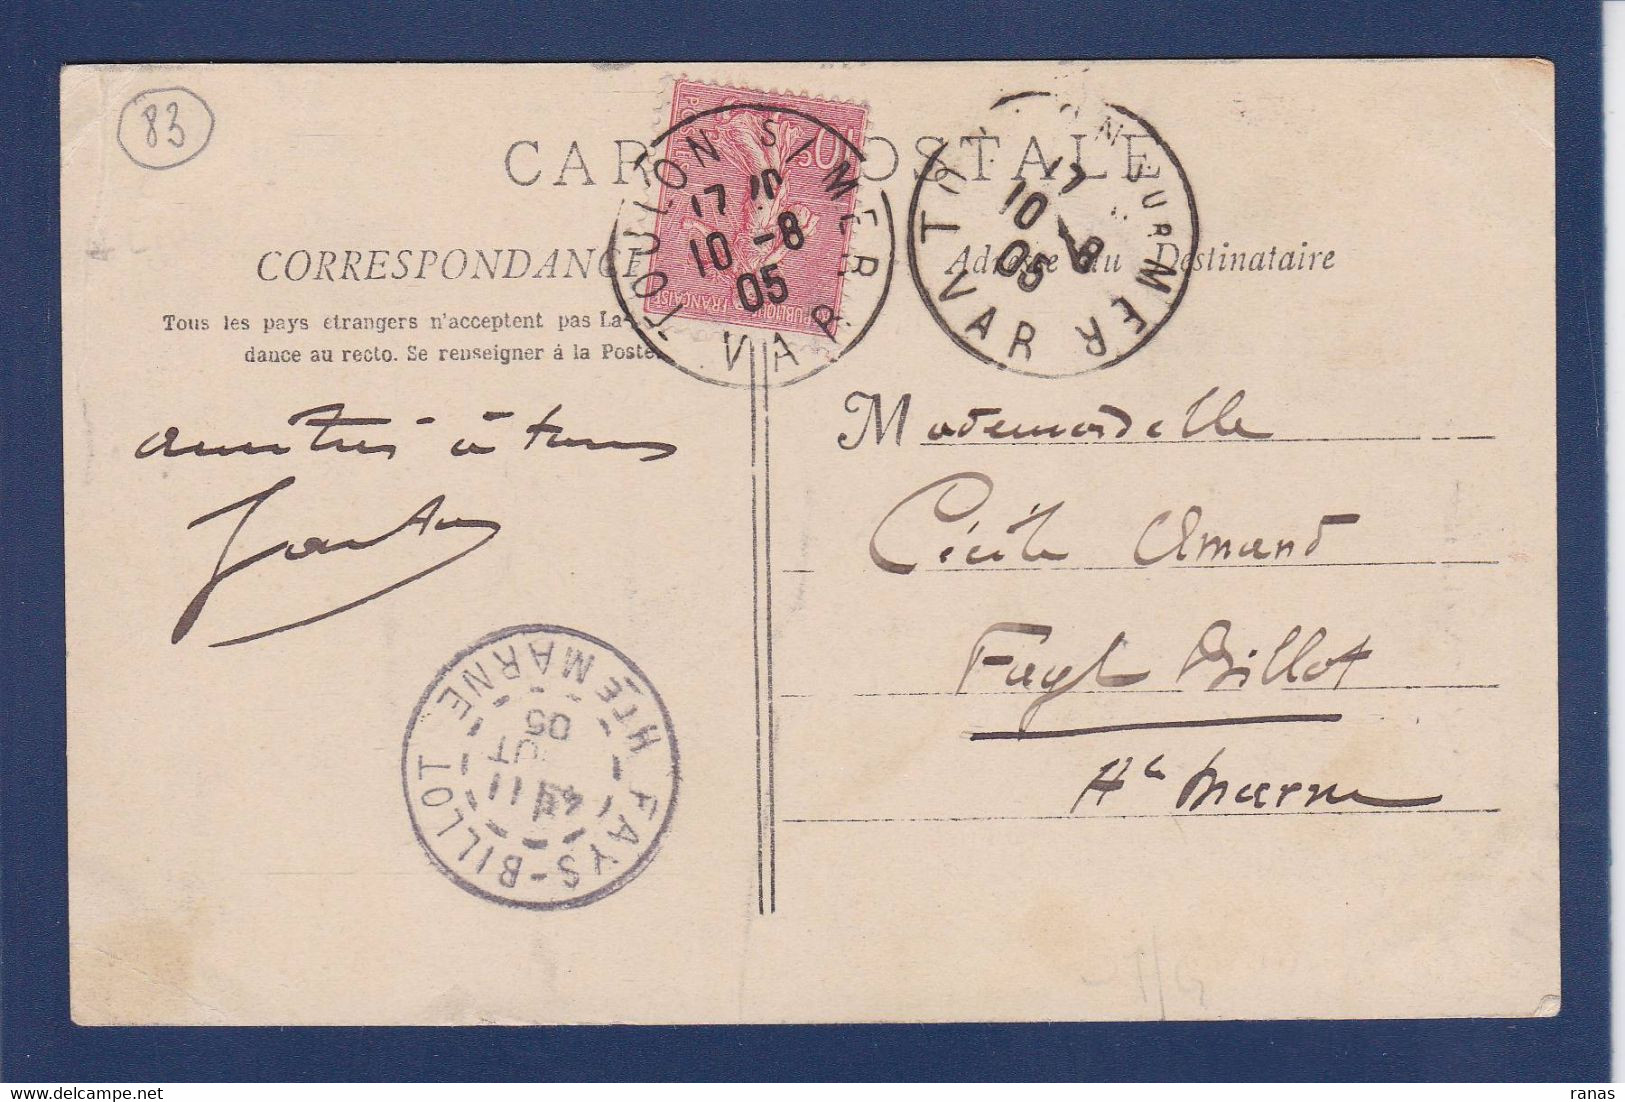 83
CARTE POSTALE
CORRESPONDANCE
Tous les pays étrangers n'acceptent pas La
dance au recto. Se renseigner à la Poste.
Adresse du Destinataire
POSTES
10
REPUBLIQUE FRANÇAISE
TOULON S/MER
17
10 -8
05
VAR
TOULON SUR MER
17
10 -8
05
VAR
Amitiés à tous
Mademoiselle
Cécile Amand
Fayl Billot
Hte Marne
FAYS-BILLOT
HTE MARNE
11
05
ranas